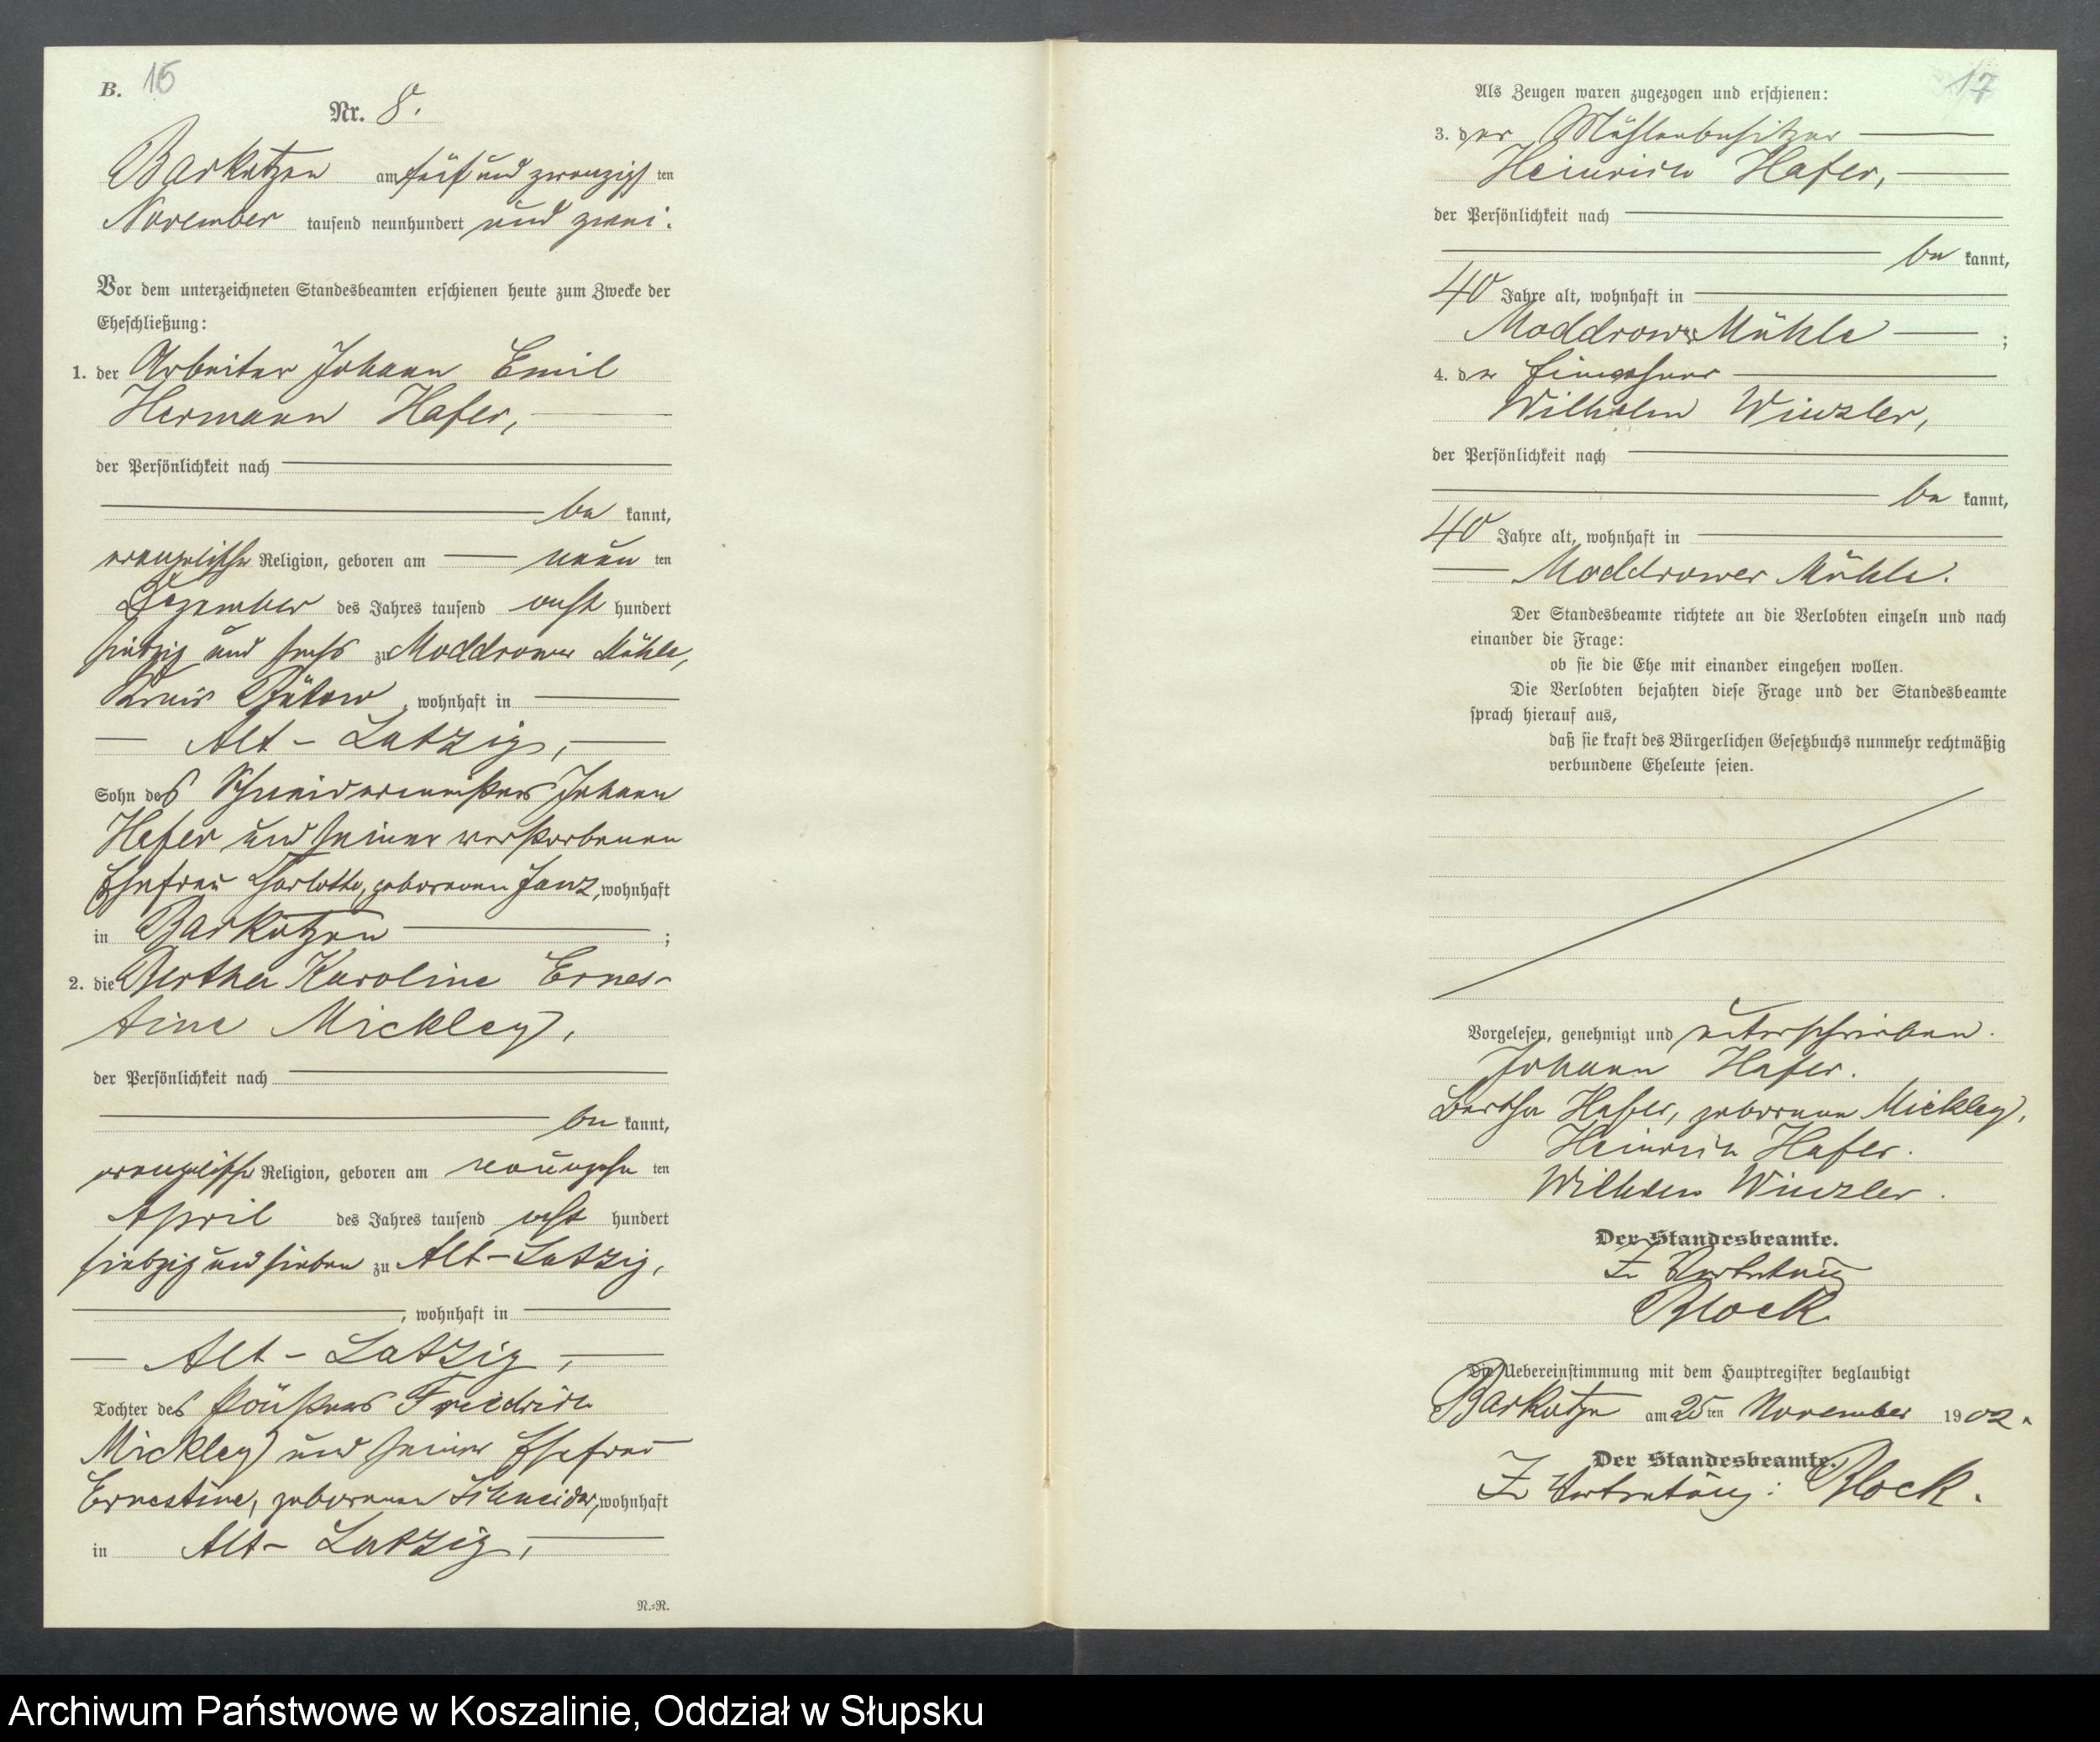 B. 15
Nr. 8.
Barkotzen am fünf und zwanzigs ten
November tausend neunhundert und zwei.
Vor dem unterzeichneten Standesbeamten erschienen heute zum Zwecke der
Eheschließung:
1. der Arbeiter Johann Emil
Hermann Hafer,
der Persönlichkeit nach
be kannt,
evangelischer Religion, geboren am neun ten
Dezember des Jahres tausend acht hundert
siebzig und sechs zu Moddrower Mühle,
Kreis Bütow, wohnhaft in
Alt-Latzig,
Sohn des Schneidermeisters Johann
Hafer und seiner verstorbenen
Ehefrau Charlotte, geborenen Janz, wohnhaft
in Barkotzen ;
2. die Bertha Karoline Ernes-
tine Mickley,
der Persönlichkeit nach
be kannt,
evangelischer Religion, geboren am neunzehn ten
April des Jahres tausend acht hundert
siebzig und sieben zu Alt-Latzig,
, wohnhaft in
Alt-Latzig,
Tochter des Friedrich
Mickley und seiner Ehefrau
Ernestine, geborenen Schneider, wohnhaft
in Alt-Latzig,
N.-R.
17
Als Zeugen waren zugezogen und erschienen:
3. der Mühlenbesitzer
Heinrich Hafer,
der Persönlichkeit nach
be kannt,
40 Jahre alt, wohnhaft in
Moddrower Mühle ;
4. der Einwohner
Wilhelm Winzler,
der Persönlichkeit nach
be kannt,
40 Jahre alt, wohnhaft in
Moddrower Mühle.
Der Standesbeamte richtete an die Verlobten einzeln und nach
einander die Frage:
ob sie die Ehe mit einander eingehen wollen.
Die Verlobten bejahten diese Frage und der Standesbeamte
sprach hierauf aus,
daß sie kraft des Bürgerlichen Gesetzbuchs nunmehr rechtmäßig
verbundene Eheleute seien.
Vorgelesen, genehmigt und unterschrieben.
Johann Hafer.
Bertha Hafer, geborene Mickley.
Heinrich Hafer.
Wilhelm Winzler.
Der Standesbeamte.
In Vertretung
Block
Die Uebereinstimmung mit dem Hauptregister beglaubigt
Barkotzen am 25 ten November 19 02.
Der Standesbeamte.
In Vertretung: Block.
Archiwum Państwowe w Koszalinie, Oddział w Słupsku